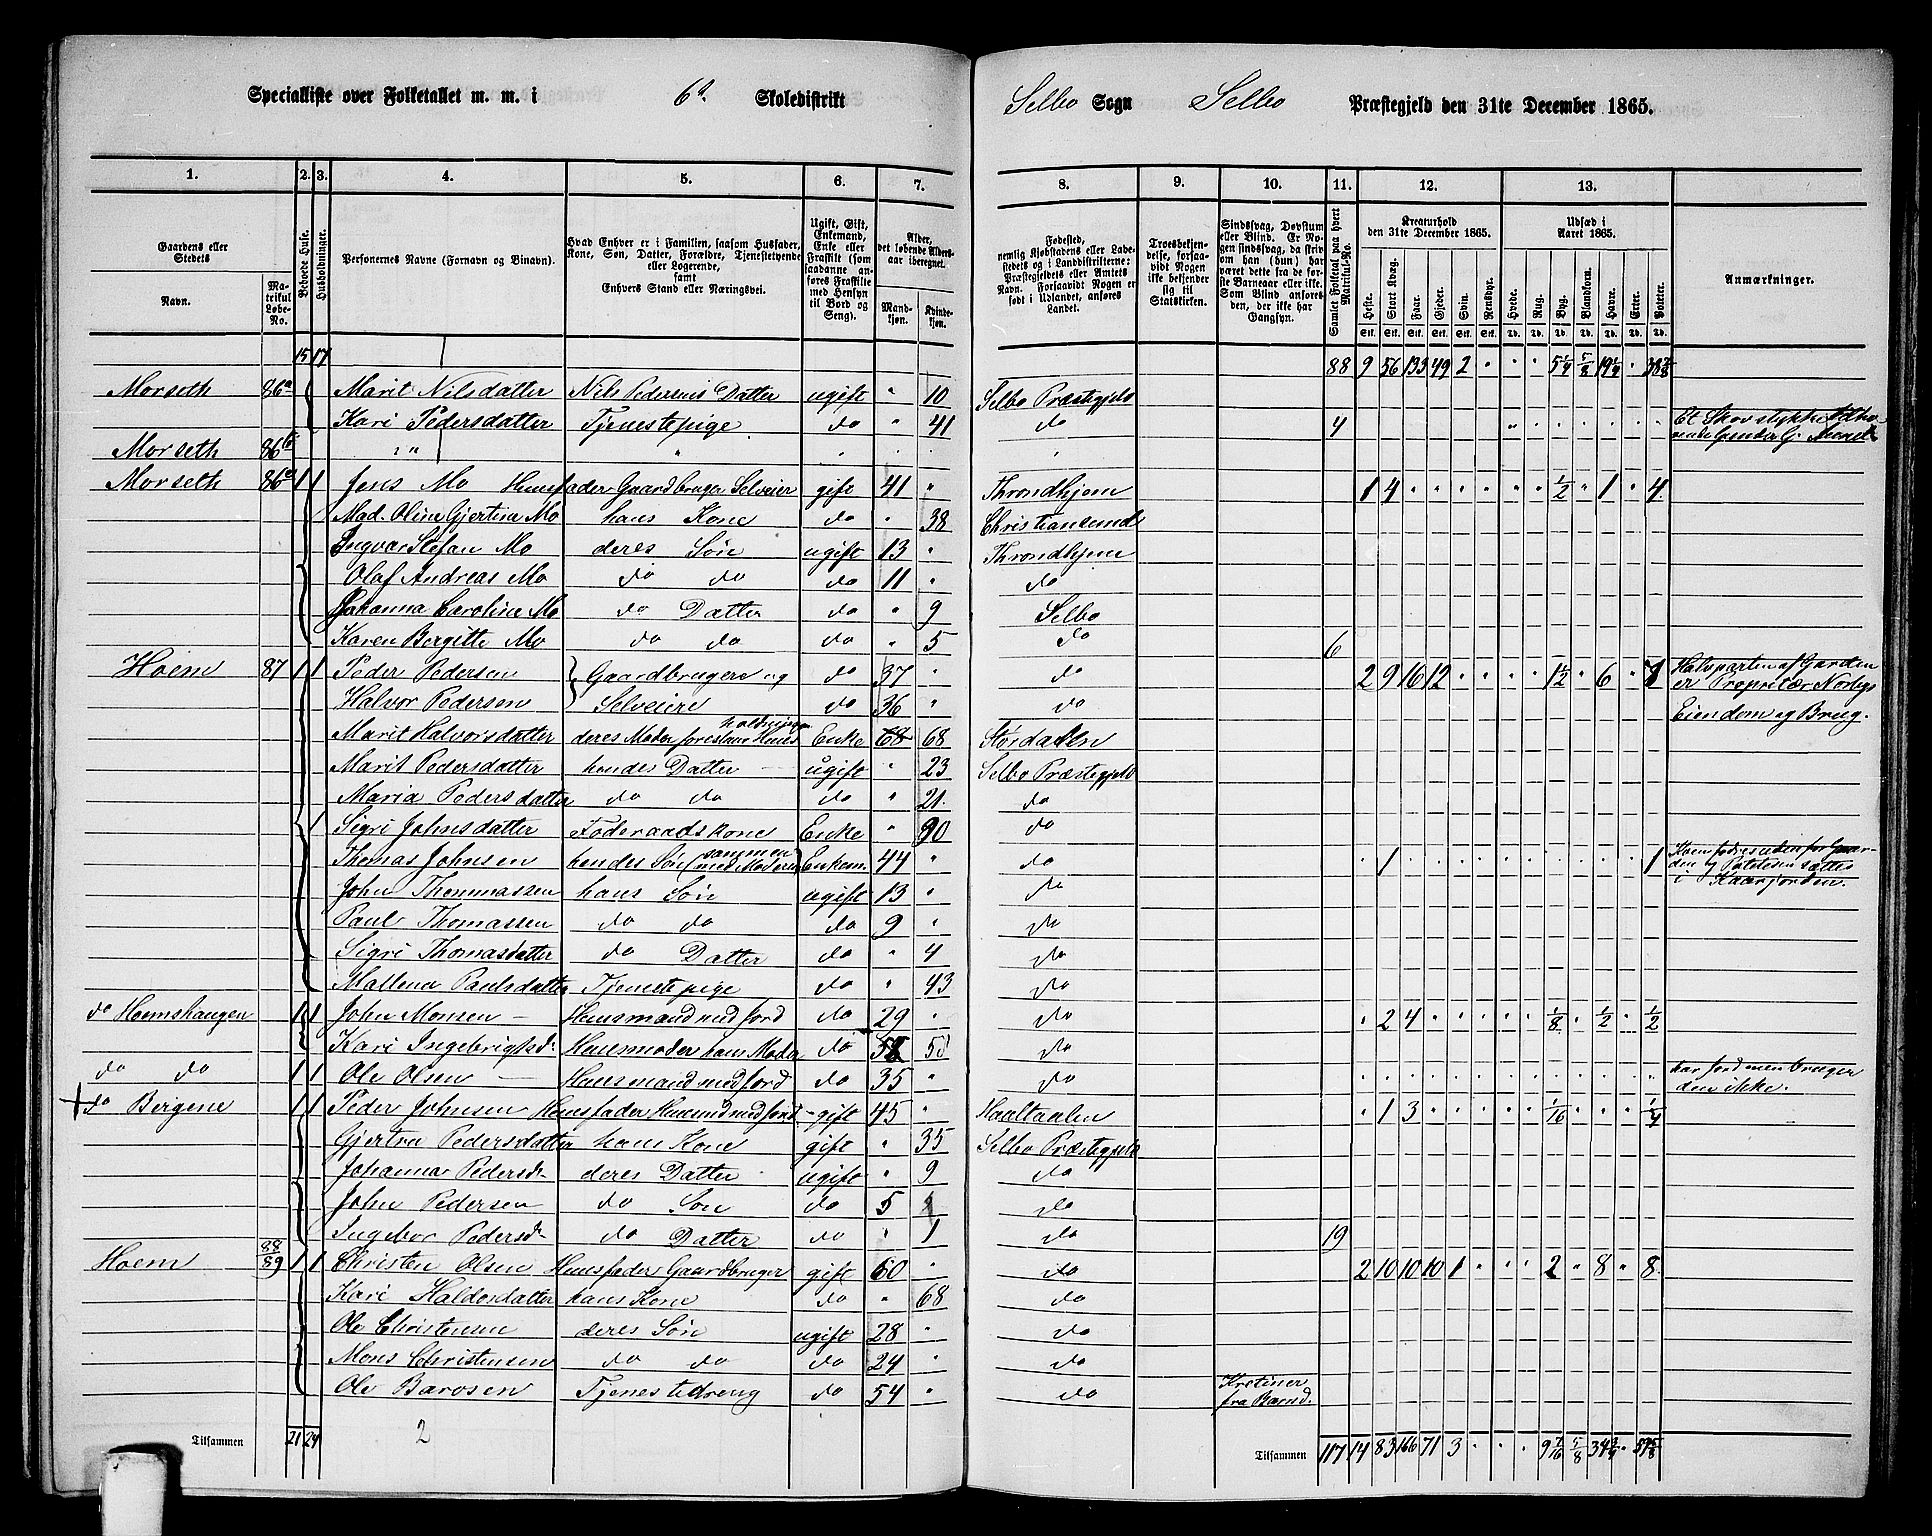 Specialliste over Folketallet m. m. i 6te Skoledistrikt Selbo Sogn Selbo Præstegjeld den 31te December 1865.
1. 2. 3. 4. 5. 6. 7. 8. 9. 10. 11. 12. 13.
Gaardens eller Stedets Navn. Matrikul Løbe-No. Beboede Huse. Husholdninger. Personernes Navne (Fornavn og Binavn). Hvad Enhver er i Familien, saasom Husfader, Kone, Søn, Datter, Forældre, Tjenestetyende eller Logerende, samt Enhvers Stand eller Næringsvei. Ugift, Gift, Enkemand, Enke eller Fraskilt (som saadanne anføres Fraskilte med Hensyn til Bord og Seng). Alder, det løbende Alders-aar iberegnet. Mandkjøn. Kvindekjøn.
Fødested, nemlig Kjøbstadens eller Ladestedets og i Landdistrikterne: Præstegjeldets eller Amtets Navn. Forsaavidt Nogen er født i Udlandet, anføres Landet. Troesbekjendelse, forsaavidt Nogen ikke bekjender sig til Statskirken. Sindssvag, Døvstum eller Blind. Er Nogen sindssvag, da skrives om han (hun) har været dette fra de første Barneaar eller ikke. Som Blind ansøres den, der ikke har Gangsyn. Samlet Folketal paa hvert Matrikul-No. Kreaturhold den 31te December 1865. Heste. Stort Kvæg. Faar. Gjeder. Svin. Rensdyr. Udsæd i Aaret 1865. Hvede. Rug. Byg. Blandkorn. Havre. Erter. Poteter. Anmærkninger.
15 17 88 9 56 133 49 2 " " " 5 1/4 5/8 19 1/4 " 38 3/8
Morseth 86a Marit Nilsdatter Nils Pedersens Datter ugift " 10 Selbo Præstegjeld
Kari Pedersdatter Tjenestepige do " 41 4 Et Skovstykke
Morseth 86b " "
Morseth 86c 1 1 Jens Mo Huusfader Gaardbruger Selveier gift 41 " Throndhjem 1 4 1/2 " 1 " 4
Mad. Olina Gjertina Mo hans Kone do " 38 Christiansund
Ingvar Stefan Mo deres Søn ugift 13 " Throndhjem
Olaf Andreas Mo do do do 11 " do
Johanna Caroline Mo do Datter do " 9 Selbo
Karen Bergitte Mo do do do " 5 do 6
Hoem 87 1 1 Peder Pedersen Gaardbrugere og do 37 " do 2 9 16 12 1 1/2 " 6 " 7 Halvparten af Gaarden
Halvor Pedersen Selveiere do 36 " do er Proprietær Norbys
Marit Halvorsdatter deres Moder forestaar Huusholdningen Enke 68 68 Størdalen Eiendom og Brug.
Marit Pedersdatter hendes Datter ugift " 23 Selbo Præstegjeld
Maria Pedersdatter do do do " 21 do
1 Sigri Johnsdatter Føderaadskone Enke " 90 do
Thomas Johnsen hendes Søn (sammen med Moderen) Enkem. 44 " do 1 1
John Thommassen hans Søn ugift 13 " do
Paul Thomassen do do do 9 " do
Sigri Thomasdatter do Datter do " 4 do
Mallena Paulsdatter Tjenestepige do " 43 do
do Hoemshaugen 1 1 John Monsen Huusmand med Jord do 29 " do 2 4 1/8 " 1/2 " 1/2
Kari Ingebrigtsd. Huusmoder hans Moder do 58 58 do
do do 1 1 Ole Olsen Huusmand med Jord do 35 " do har Jord men bruger den ikke.
do Bergene 1 1 Peder Johnsen Huusfader Huusmd med Jord gift 45 " Haaltaalen 1 3 1/16 1/4
Gjertru Pedersdatter hans Kone gift " 35 Selbo Præstegjeld
Johanna Pedersd. deres Datter ugift " 9 do
John Pedersen do Søn do 5 do
Ingebor Pedersd. do Datter do " 1 do 19
Hoem 88 89 1 1 Christen Olsen Huusfader Gaardbruger gift 60 " do 2 10 10 10 1 2 " 8 " 8
Kari Haldosdatter hans Kone do " 68 do
Ole Christensen deres Søn ugift 28 " do
Mons Christensen do do do 24 " do
Ole Barosen Tjenestedreng do 54 " do Kretiner fra Barnd.
Tilsammen 21 24 2 Tilsammen 117 14 83 166 71 3 " " " 9 7/16 5/8 34 3/4 " 59 5/8